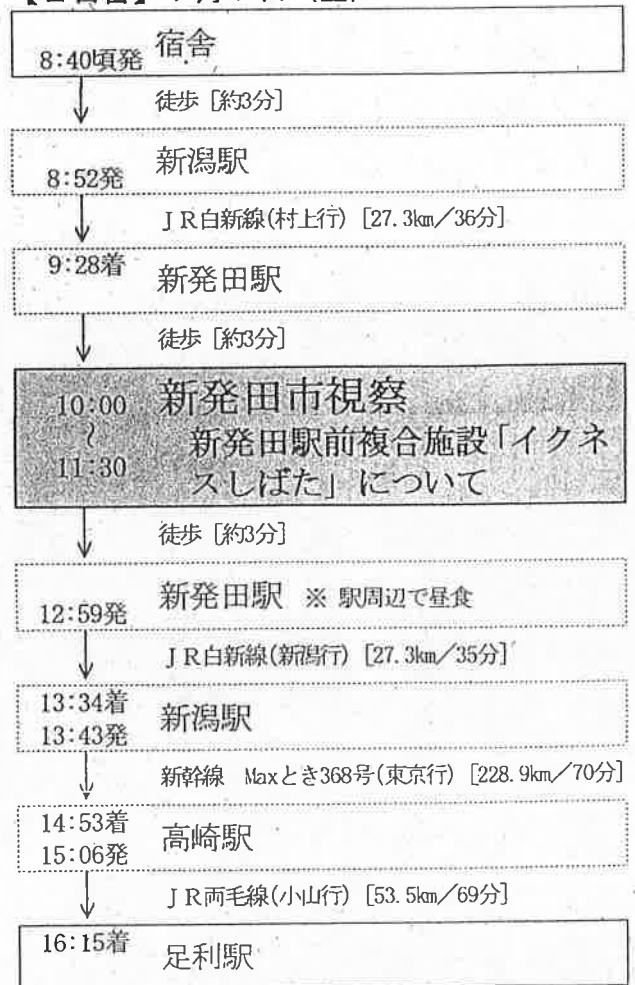 8:40頃発 宿舎
徒歩 [約3分]
8:52発 新潟駅
JR白新線(村上行) [27.3km/36分]
9:28着 新発田駅
徒歩 [約3分]
10:00 新発田市視察
~ 新発田駅前複合施設「イクネ
11:30 スしばた」について
徒歩 [約3分]
12:59発 新発田駅 ※ 駅周辺で昼食
JR白新線(新潟行) [27.3km/35分]
13:34着
13:43発 新潟駅
新幹線 Maxとき368号(東京行) [228.9km/70分]
14:53着
15:06発 高崎駅
JR両毛線(小山行) [53.5km/69分]
16:15着 足利駅